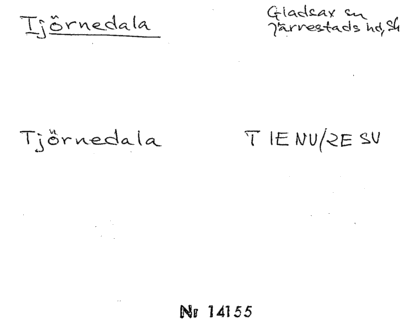 Tjörnedala
Gladsax sn
Järrestads hd, Sk
Tjörnedala
T 1E NV/2E SV
Nr 14155